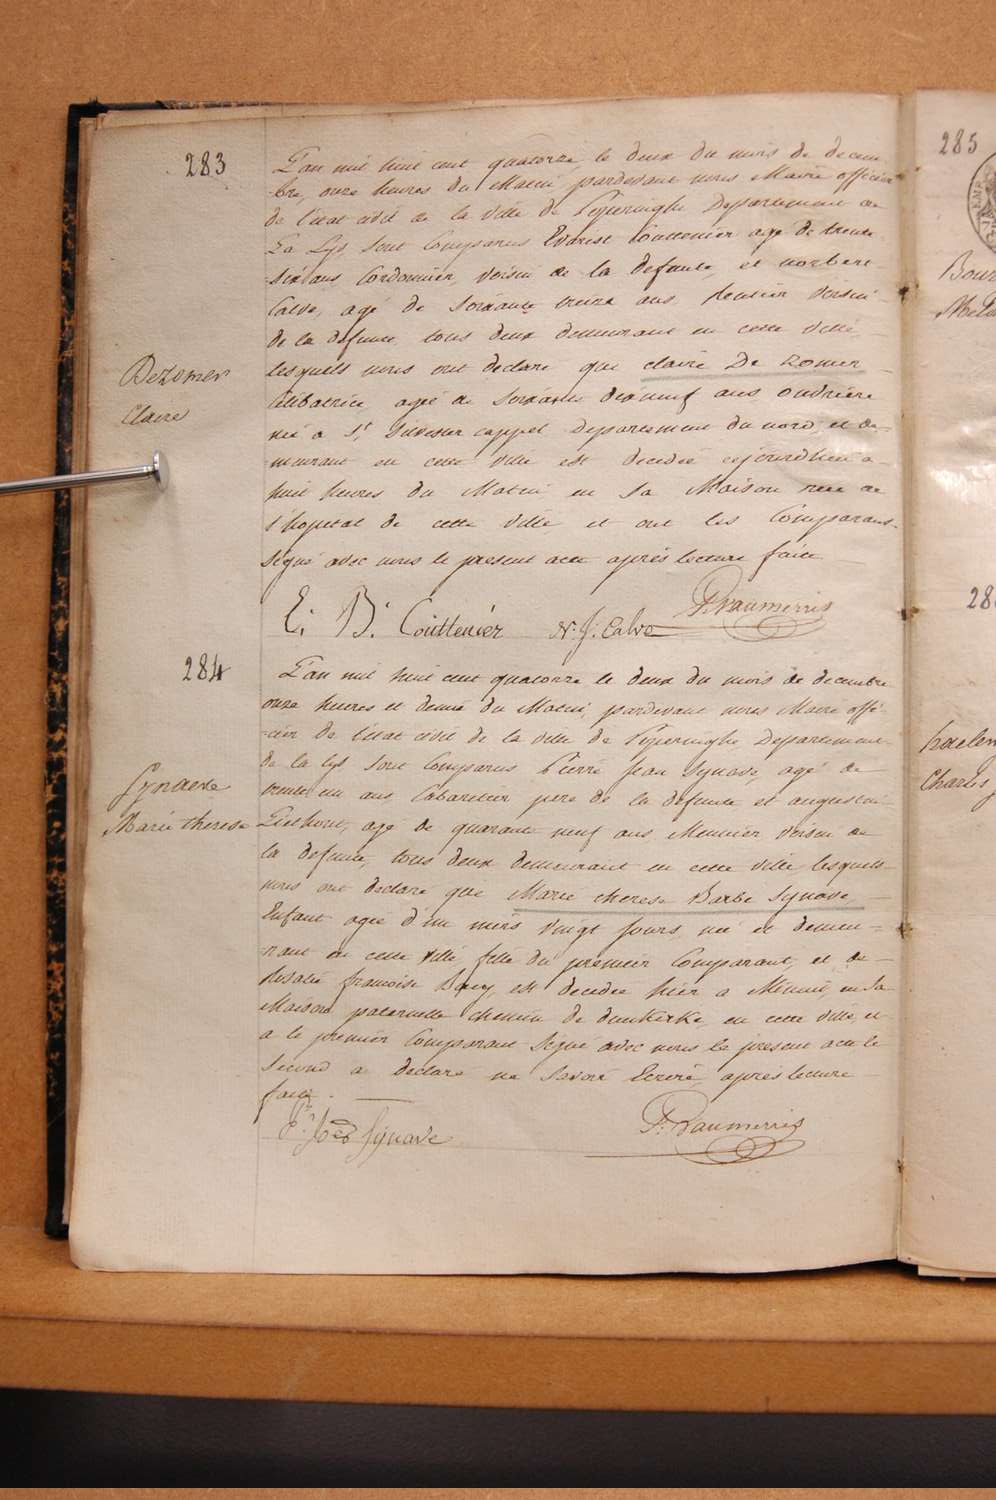 283
L'an mil huit cent quatorze le deux du mois de decem
bre, onze heures du Matin, pardevant nous Maire officier
de l'état civil de la ville de Poperinghe Departement de
La Lys sont Comparus Evarist Couttenier agé de trente
Sixans Cordonnier, voisin de la defunte, et norbert
Calvo, agé de soixante treize ans, Rentier voisin
de la defunte, tous deux demeurant en cette ville
lesquels nous ont declaré que claire De Zomer
Célibatrice, agé de soixante dixneuf ans ouvrière
née a St Silvester cappel Departement du nord, et de-
-meurant en cette ville est decedée cejourdhui a
huit heures du Matin en sa Maison rue de
l'hopital de cette ville, et ont les Comparans
Signé avec nous le present acte après lecture faite
Dezomer
Claire
E. B. Couttenier N. J. Calvo P. Vaumerris
284
L'an mil huit cent quatorze le deux du mois de decembre
onze heures et demie du Matin, pardevant nous Maire offi-
-cier de l'état civil de la ville de Poperinghe Departement
de la Lys sont Comparus Pierre Jean Synave, agé de
trente un ans Cabaretier pere de la defunte et augustin
Liethout, agé de quarante neuf ans, Meunier, voisin de
la defunte, tous deux demeurant en cette ville lesquels
nous ont declaré que Marie therese Barbe Synave,
Enfant agée d'un mois vingt jours, née et demeu-
-rant en cette ville, fille du premier Comparant, et de
Rosalie francoise, est decedée hier a Minuit, en sa
Maison paternelle chemin de dunkerke, en cette ville, et
a le premier Comparant signé avec nous le present acte le
Second a declaré ne savoir Ecrire, après lecture
faite.
Synaeve
Marie therese
Synave P. Vaumerris
285